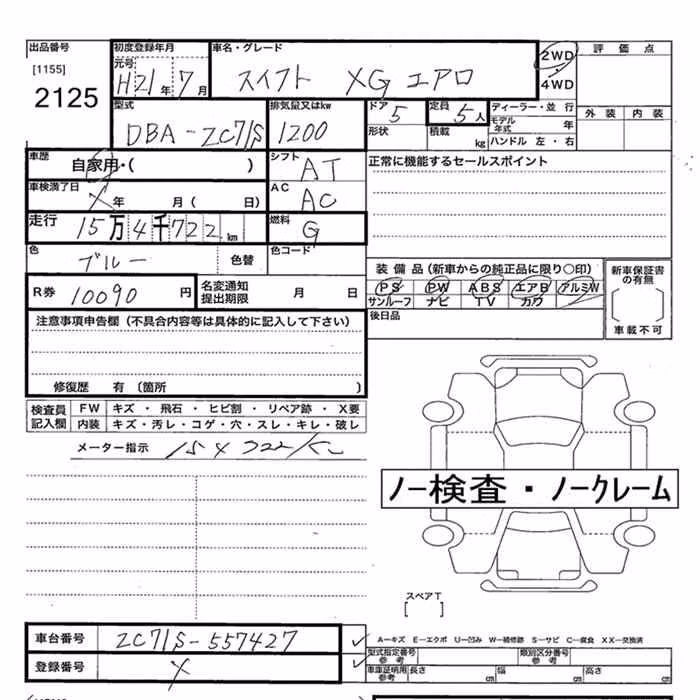 出品番号 初度登録年月 車名・グレード 2WD 評価点
[1155] 元号 H21年 7月 スイフト XG エアロ 4WD
2125 外装 内装
型式 排気量又はkw ドア 5 定員 5人 ディーラー・並行
DBA-ZC71S 1200 形状 積載 kg モデル年式 年
ハンドル 左・右
車歴 自家用・( ) シフト AT 正常に機能するセールスポイント
車検満了日 X年 月( 日) AC AC
走行 15万4千722km 燃料 G
色 ブルー 色替 色コード 装備品(新車からの純正品に限り○印) 新車保証書の有無
R券 10090円 名変通知提出期限 月 日 PS PW ABS エアB アルミW
サンルーフ ナビ TV カワ
後日品 車載不可
注意事項申告欄(不具合内容等は具体的に記入して下さい)
修復歴 有〔箇所 〕
検査員記入欄 FW キズ・飛石・ヒビ割・リペア跡・X要
内装 キズ・汚レ・コゲ・穴・スレ・キレ・破レ
メーター指示
ノー検査・ノークレーム
スペアT
[ ]
車台番号 ZC71S-557427 ✓ A−キズ E−エクボ U−凹み W−補修跡 S−サビ C−腐食 XX−交換済
型式指定番号 参考 類別区分番号 参考
登録番号 X ✓ 車庫証明用 参考 長さ cm 幅 cm 高さ cm